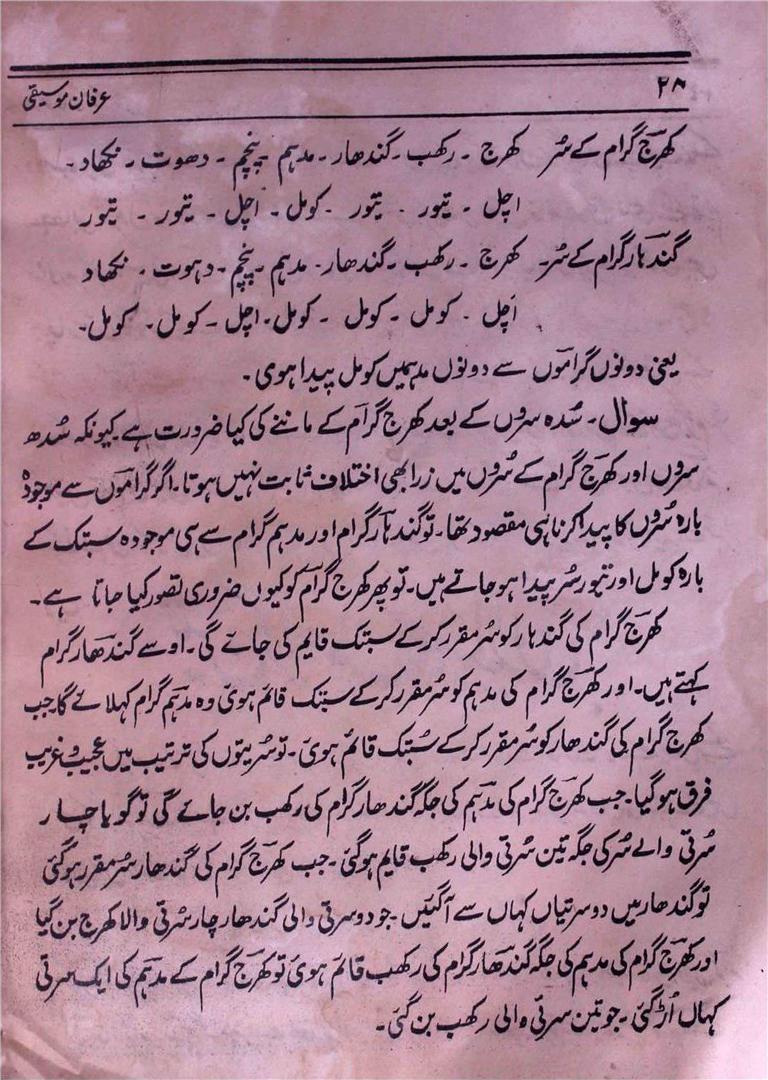 ۲۸
عرفان موسیقی
کھرج گرام کے سُر کھرج ۔ رکھب ۔ گندھار ۔ مدہم ۔ پنچم ۔ دھوت ۔ نکھاد ۔
اچل ۔ تیور ۔ تیور ۔ کومل ۔ اچل ۔ تیور ۔ تیور
گندہار گرام کے سُر۔ کھرج ۔ رکھب ۔ گندھار ۔ مدہم ۔ پنچم ۔ دہوت ۔ نکھاد
اَچل ۔ کومل ۔ کومل ۔ کومل ۔ اچل ۔ کومل ۔ کومل۔
یعنی دونوں گراموں سے دونوں مدہمیں کومل پیدا ہوی ۔
سوال ۔ سُدہ سروں کے بعد کھرج گرام کے ماننے کی کیا ضرورت ہے کیونکہ سُدھ
سروں اور کھرج گرام کے سُروں میں زرا بھی اختلاف ثابت نہیں ہوتا ۔ اگر گراموں سے موجودہ
بارہ سُروں کا پیدا کرنا ہی مقصود تھا ۔ تو گندہار گرام اور مدہم گرام سے ہی موجودہ سبتک کے
بارہ کومل اور تیور سُر پیدا ہو جاتے ہیں ۔ تو پھر کھرج گرام کو کیوں ضروری تصور کیا جاتا ہے ۔
کھرج گرام کی گندہار کو سُر مقرر کر کے سبتک قایم کی جائے گی ۔ اوسے گندھار گرام
کہتے ہیں ۔ اور کھرج گرام کی مدہم کو سُر مقرر کر کے سبتک قائم ہوئی وہ مدہم گرام کہلائے گا ۔ جب
کھرج گرام کی گندھار کو سُر مقرر کر کے سُبتک قائم ہوئی ۔ تو سُریتوں کی ترتیب میں عجیب و غریب
فرق ہو گیا ۔ جب کھرج گرام کی مدہم کی جگہ گندھار گرام کی رکھب بن جائے گی تو گویا چار
سُرتی والے سُر کی جگہ تین سُرتی والی رکھب قایم ہو گئی ۔ جب کھرج گرام کی گندھار سُر مقرر ہو گئی
تو گندھار میں دو سرتیاں کہاں سے آ گئیں ۔ جو دو سرتی والی گندھار چار سُرتی والا کھرج بن گیا
اور کھرج گرام کی مدہم کی جگہ گندھار گرام کی رکھب قائم ہوئی تو کھرج گرام کے مدہم کی ایک سرتی
کہاں اُڑ گئی ۔ جو تین سرتی والی رکھب بن گئی ۔